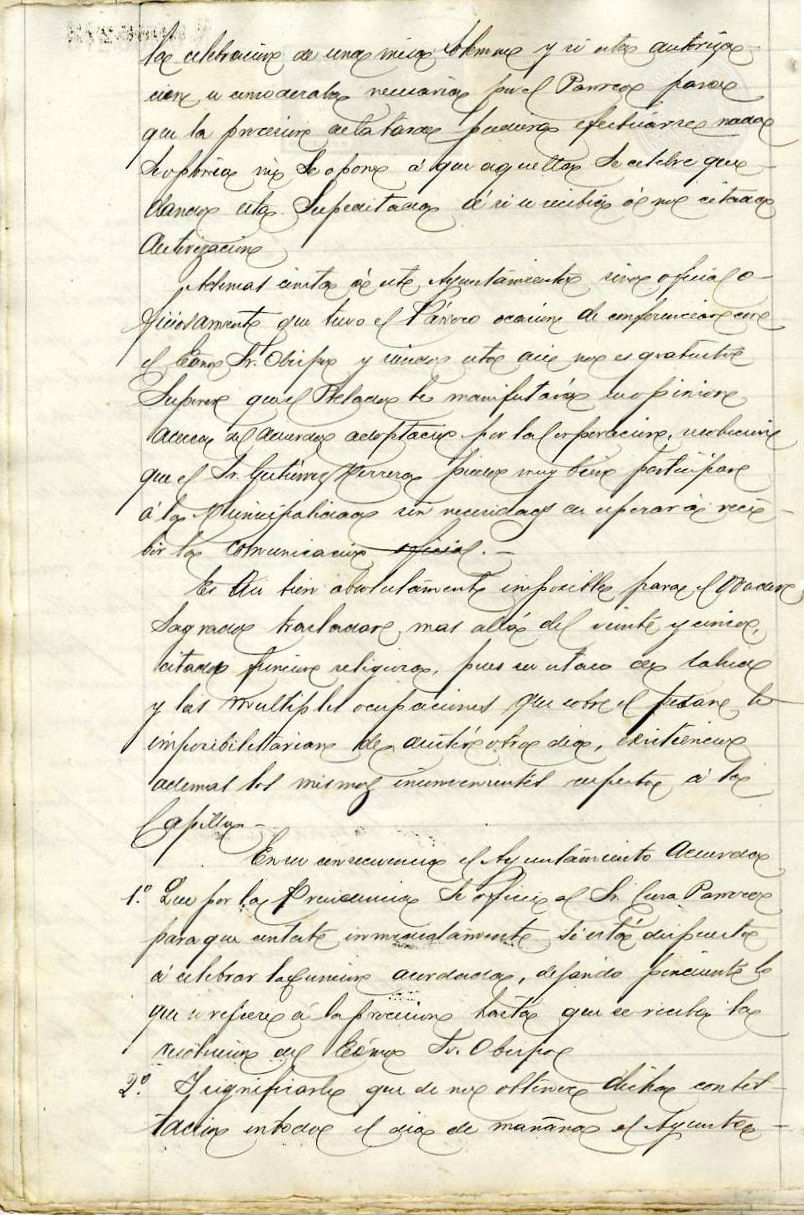 la celebracion de una misa solemne y si esta autoriza-
cion se consideraba necesaria por el Parroco para
que la procesion de la tarde pudiera efectuarse nada
se oponia ni se opone á que aquella se celebre que-
dando esta supeditada á si se recibia ó no citada
autorizacion
Ademas consta á este Ayuntamiento sino oficial o-
ficiosamente que tuvo el Párroco ocasion de conferenciar con
el Excmo Sr. Obispo y siendo esto asi no es gratuito
suponer que el Prelado le manifestaria su opinion
acerca del acuerdo adoptado por la Corporacion, resolucion
que el Sr. Gutierrez Herrera puede muy bien participar
á la Municipalidad sin necesidad de esperar á reci-
bir la comunicacion oficial.-
Es tan bien absolutamente imposible para el Orador
Sagrado trasladar mas allá del veinte y cinco,
citada funcion religiosa, pues su estado de salud
y las multiples ocupaciones que sobre el pesan le
imposibilitarian de asistir otro dia, existiendo
ademas los mismos inconvenientes respecto á la
Capilla-
En su consecuencia el Ayuntamiento Acuerda
1.º Que por la Presidencia se oficie al Sr. Cura Parroco
para que conteste inmediatamente si está dispuesto
á celebrar la funcion acordada, dejando pendiente lo
que se refiere á la procesion hasta que se reciba la
resolucion del Excmo Sr. Obispo
2.º Y significarle que de no obtener dicha contes-
tacion en todo el dia de mañana el Ayunta-